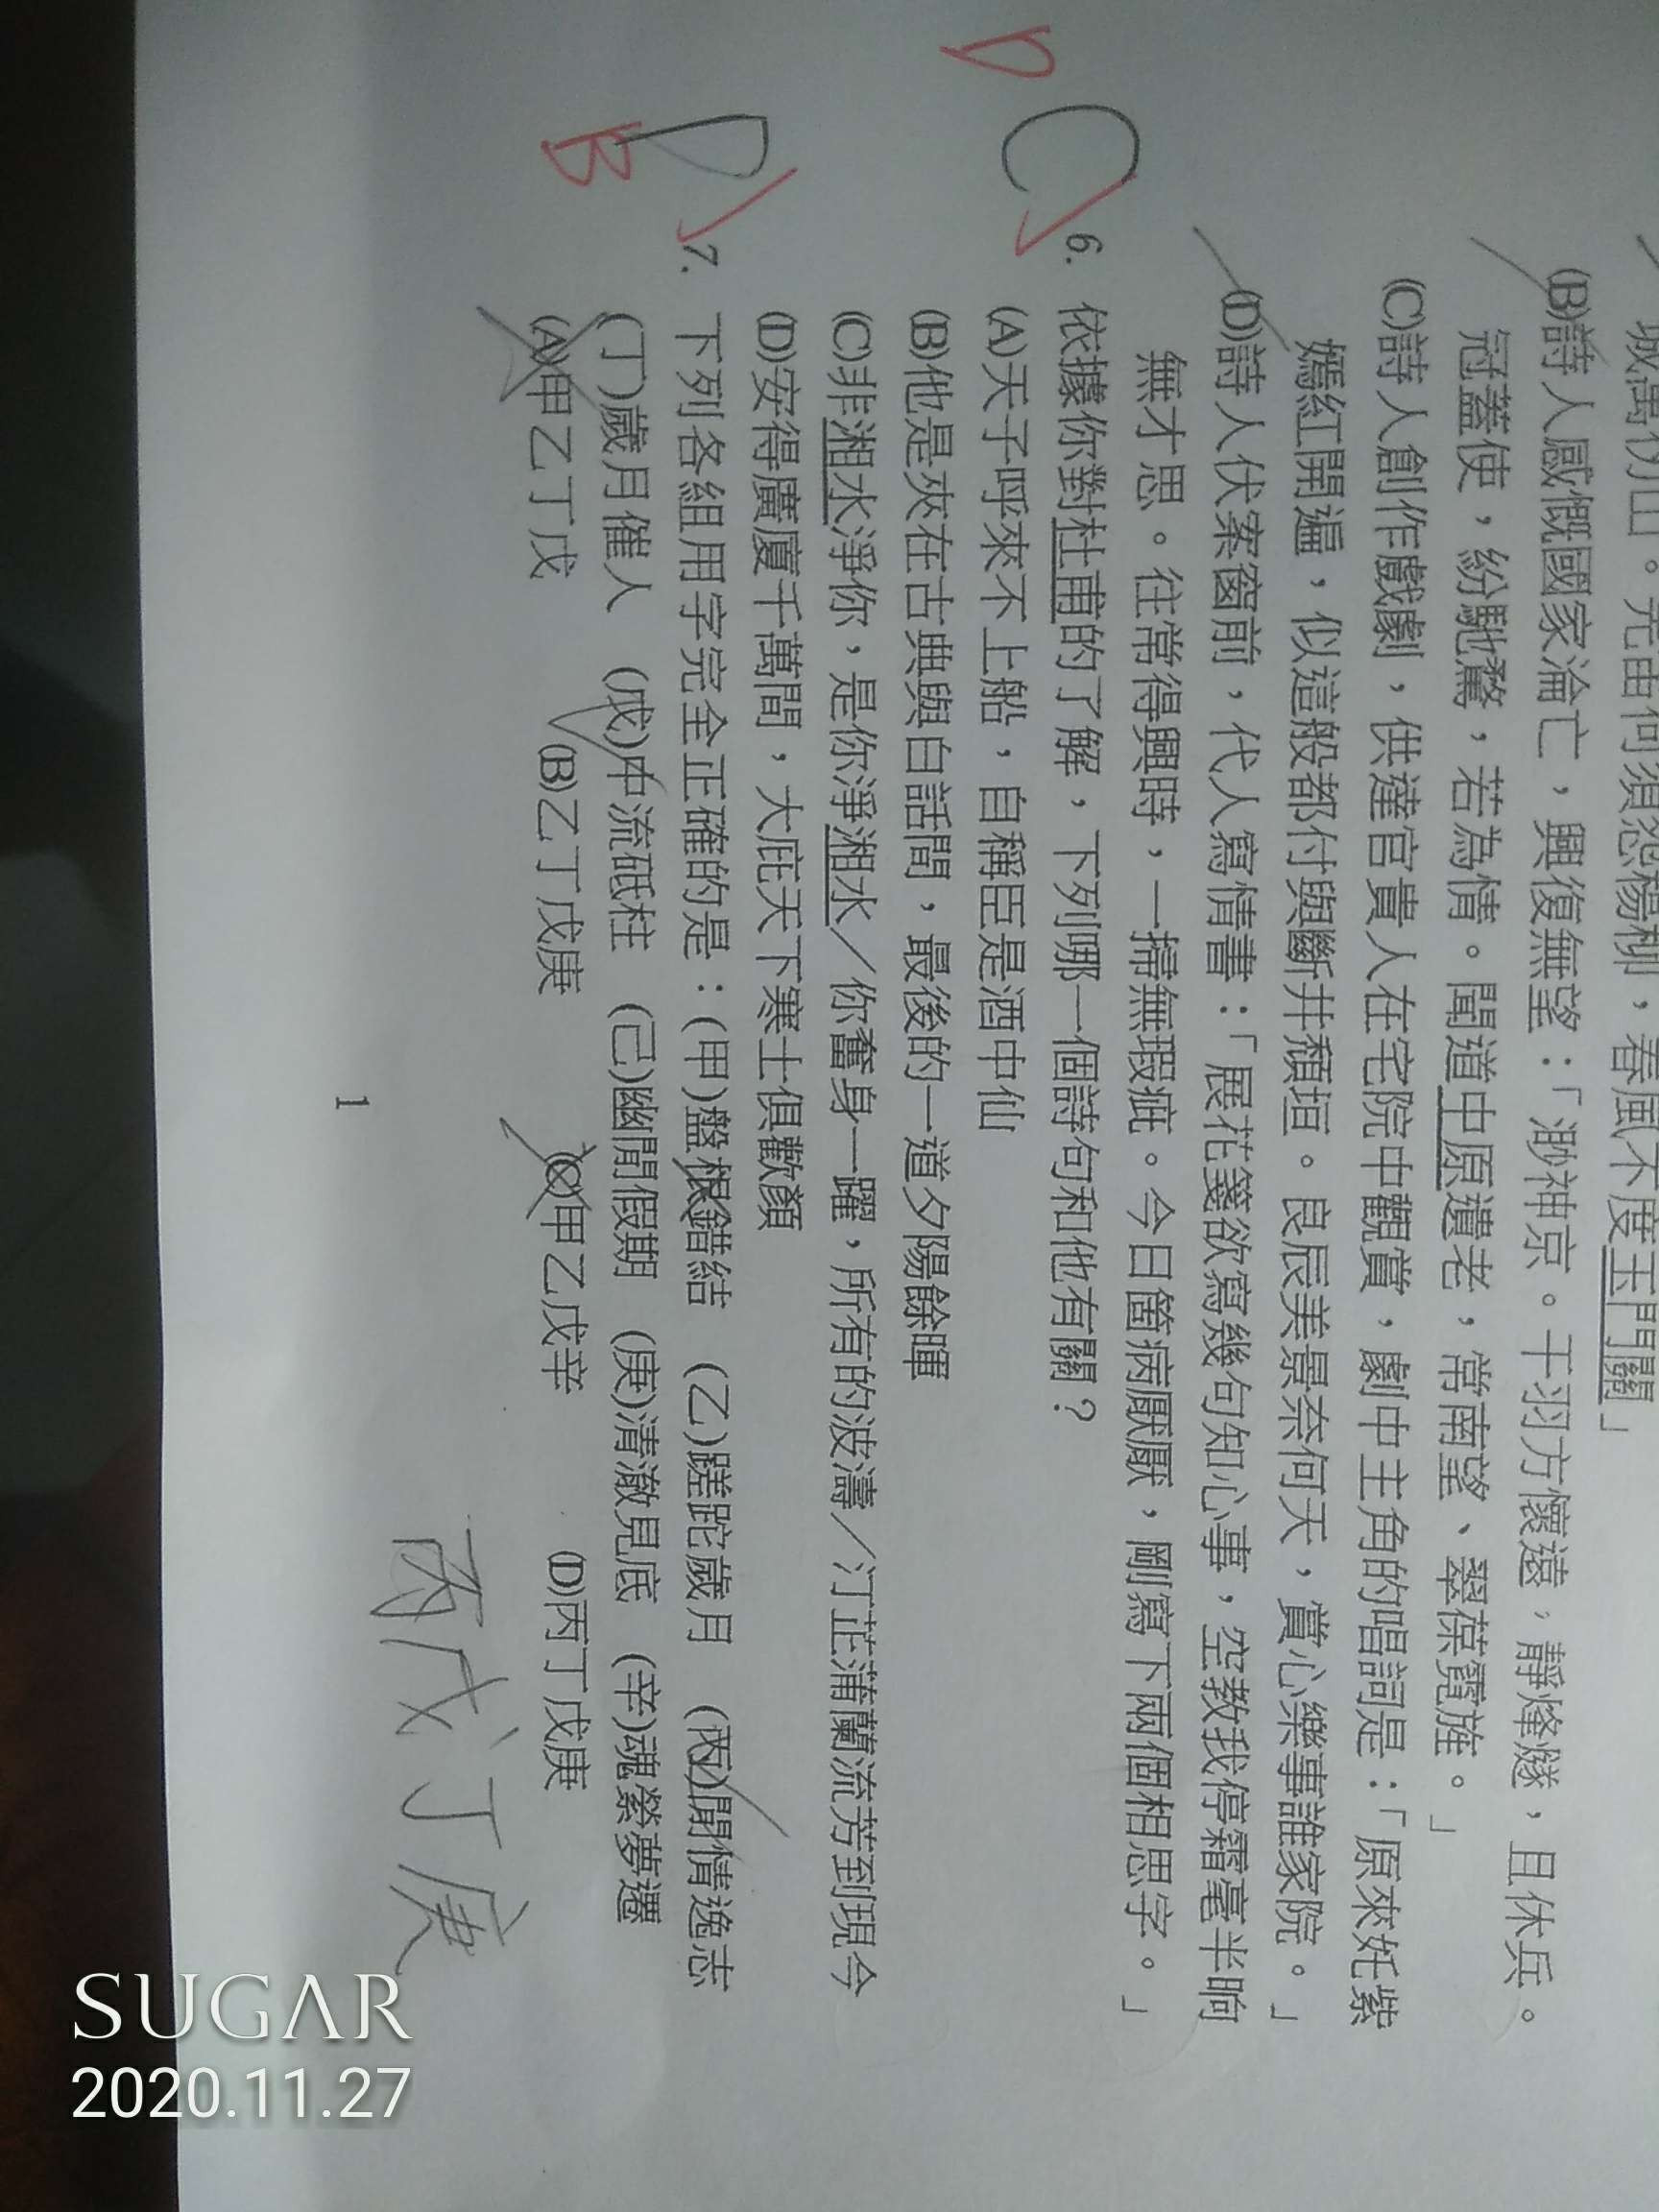 城萬仞山。羌笛何須怨楊柳，春風不度玉門關」
(B)詩人感慨國家淪亡，興復無望：「渺神京。干羽方懷遠，靜烽燧，且休兵。
冠蓋使，紛馳騖，若為情。聞道中原遺老，常南望、翠葆霓旌。」
(C)詩人創作戲劇，供達官貴人在宅院中觀賞，劇中主角的唱詞是：「原來奼紫
嫣紅開遍，似這般都付與斷井頹垣。良辰美景奈何天，賞心樂事誰家院。」
(D)詩人伏案窗前，代人寫情書：「展花箋欲寫幾句知心事，空教我停霜毫半晌
無才思。往常得興時，一掃無瑕疵。今日箇病厭厭，剛寫下兩個相思字。」
D
C
6. 依據你對杜甫的了解，下列哪一個詩句和他有關？
(A)天子呼來不上船，自稱臣是酒中仙
(B)他是夾在古典與白話間，最後的一道夕陽餘暉
(C)非湘水淨你，是你淨湘水／你奮身一躍，所有的波濤／汀芷蒲蘭流芳到現今
(D)安得廣廈千萬間，大庇天下寒士俱歡顏
D
B
7. 下列各組用字完全正確的是：(甲)盤根錯結 (乙)蹉跎歲月 (丙)閒情逸志
(丁)歲月催人 (戊)中流砥柱 (己)幽閒假期 (庚)清澈見底 (辛)魂縈夢遷
(A)甲乙丁戊 (B)乙丁戊庚 (C)甲乙戊辛 (D)丙丁戊庚
丙戊丁庚
1
SUGAR
2020.11.27